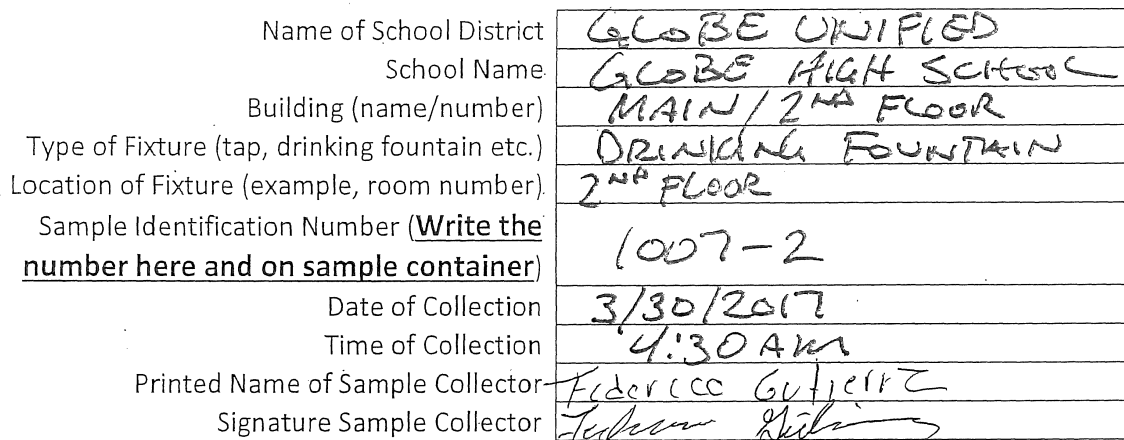 Name of School District GLOBE UNIFIED
School Name GLOBE HIGH SCHOOL
Building (name/number) MAIN / 2ND FLOOR
Type of Fixture (tap, drinking fountain etc.) DRINKING FOUNTAIN
Location of Fixture (example, room number) 2ND FLOOR
Sample Identification Number (Write the
number here and on sample container) 1007-2
Date of Collection 3/30/2017
Time of Collection 4:30 AM
Printed Name of Sample Collector Federico Gutierrz
Signature Sample Collector